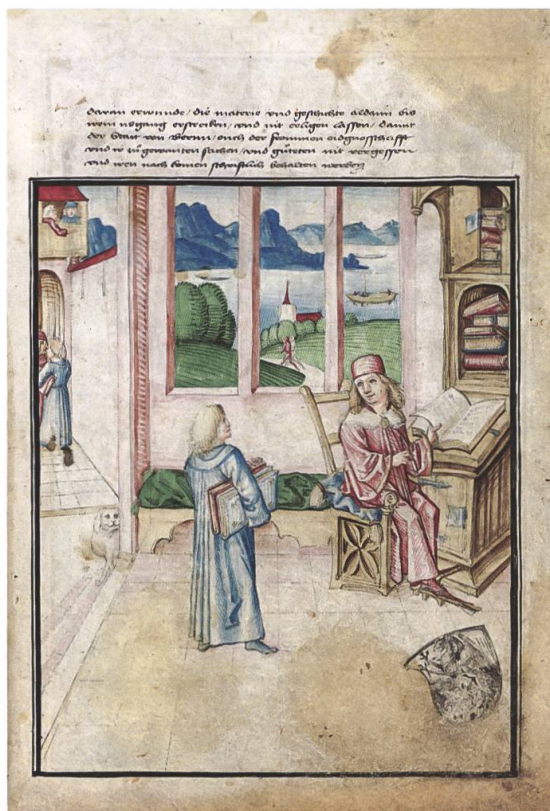 daran erwunde / die materie und geschichte aldann bis
irem usgang erstrecken / und nit erligen lassen / damit
der Statt von Bernn / ouch der frommen eidgnosschafft
und ir zů gewanten sachen / und gůteten nit vergessen
und iren nach komen schriftlich behalten werden